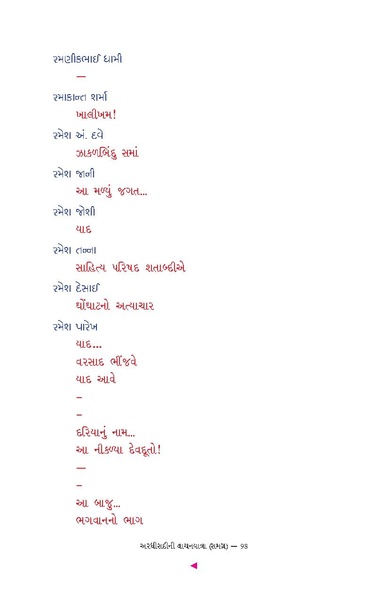 રમણીકભાઈ ધામી
—
રમાકાન્ત શર્મા
ખાલીખમ!
રમેશ અં. દવે
ઝાકળબિંદુ સમાં
રમેશ જાની
આ મળ્યું જગત...
રમેશ જોશી
યાદ
રમેશ તન્ના
સાહિત્ય પરિષદ શતાબ્દીએ
રમેશ દેસાઈ
ઘોંઘાટનો અત્યાચાર
રમેશ પારેખ
યાદ...
વરસાદ ભીંજવે
યાદ આવે
–
–
દરિયાનું નામ...
આ નીકળ્યા દેવદૂતો!
—
–
આ બાજુ...
ભગવાનનો ભાગ
અરધીસદીની વાચનયાત્રા (સમગ્ર) — 98